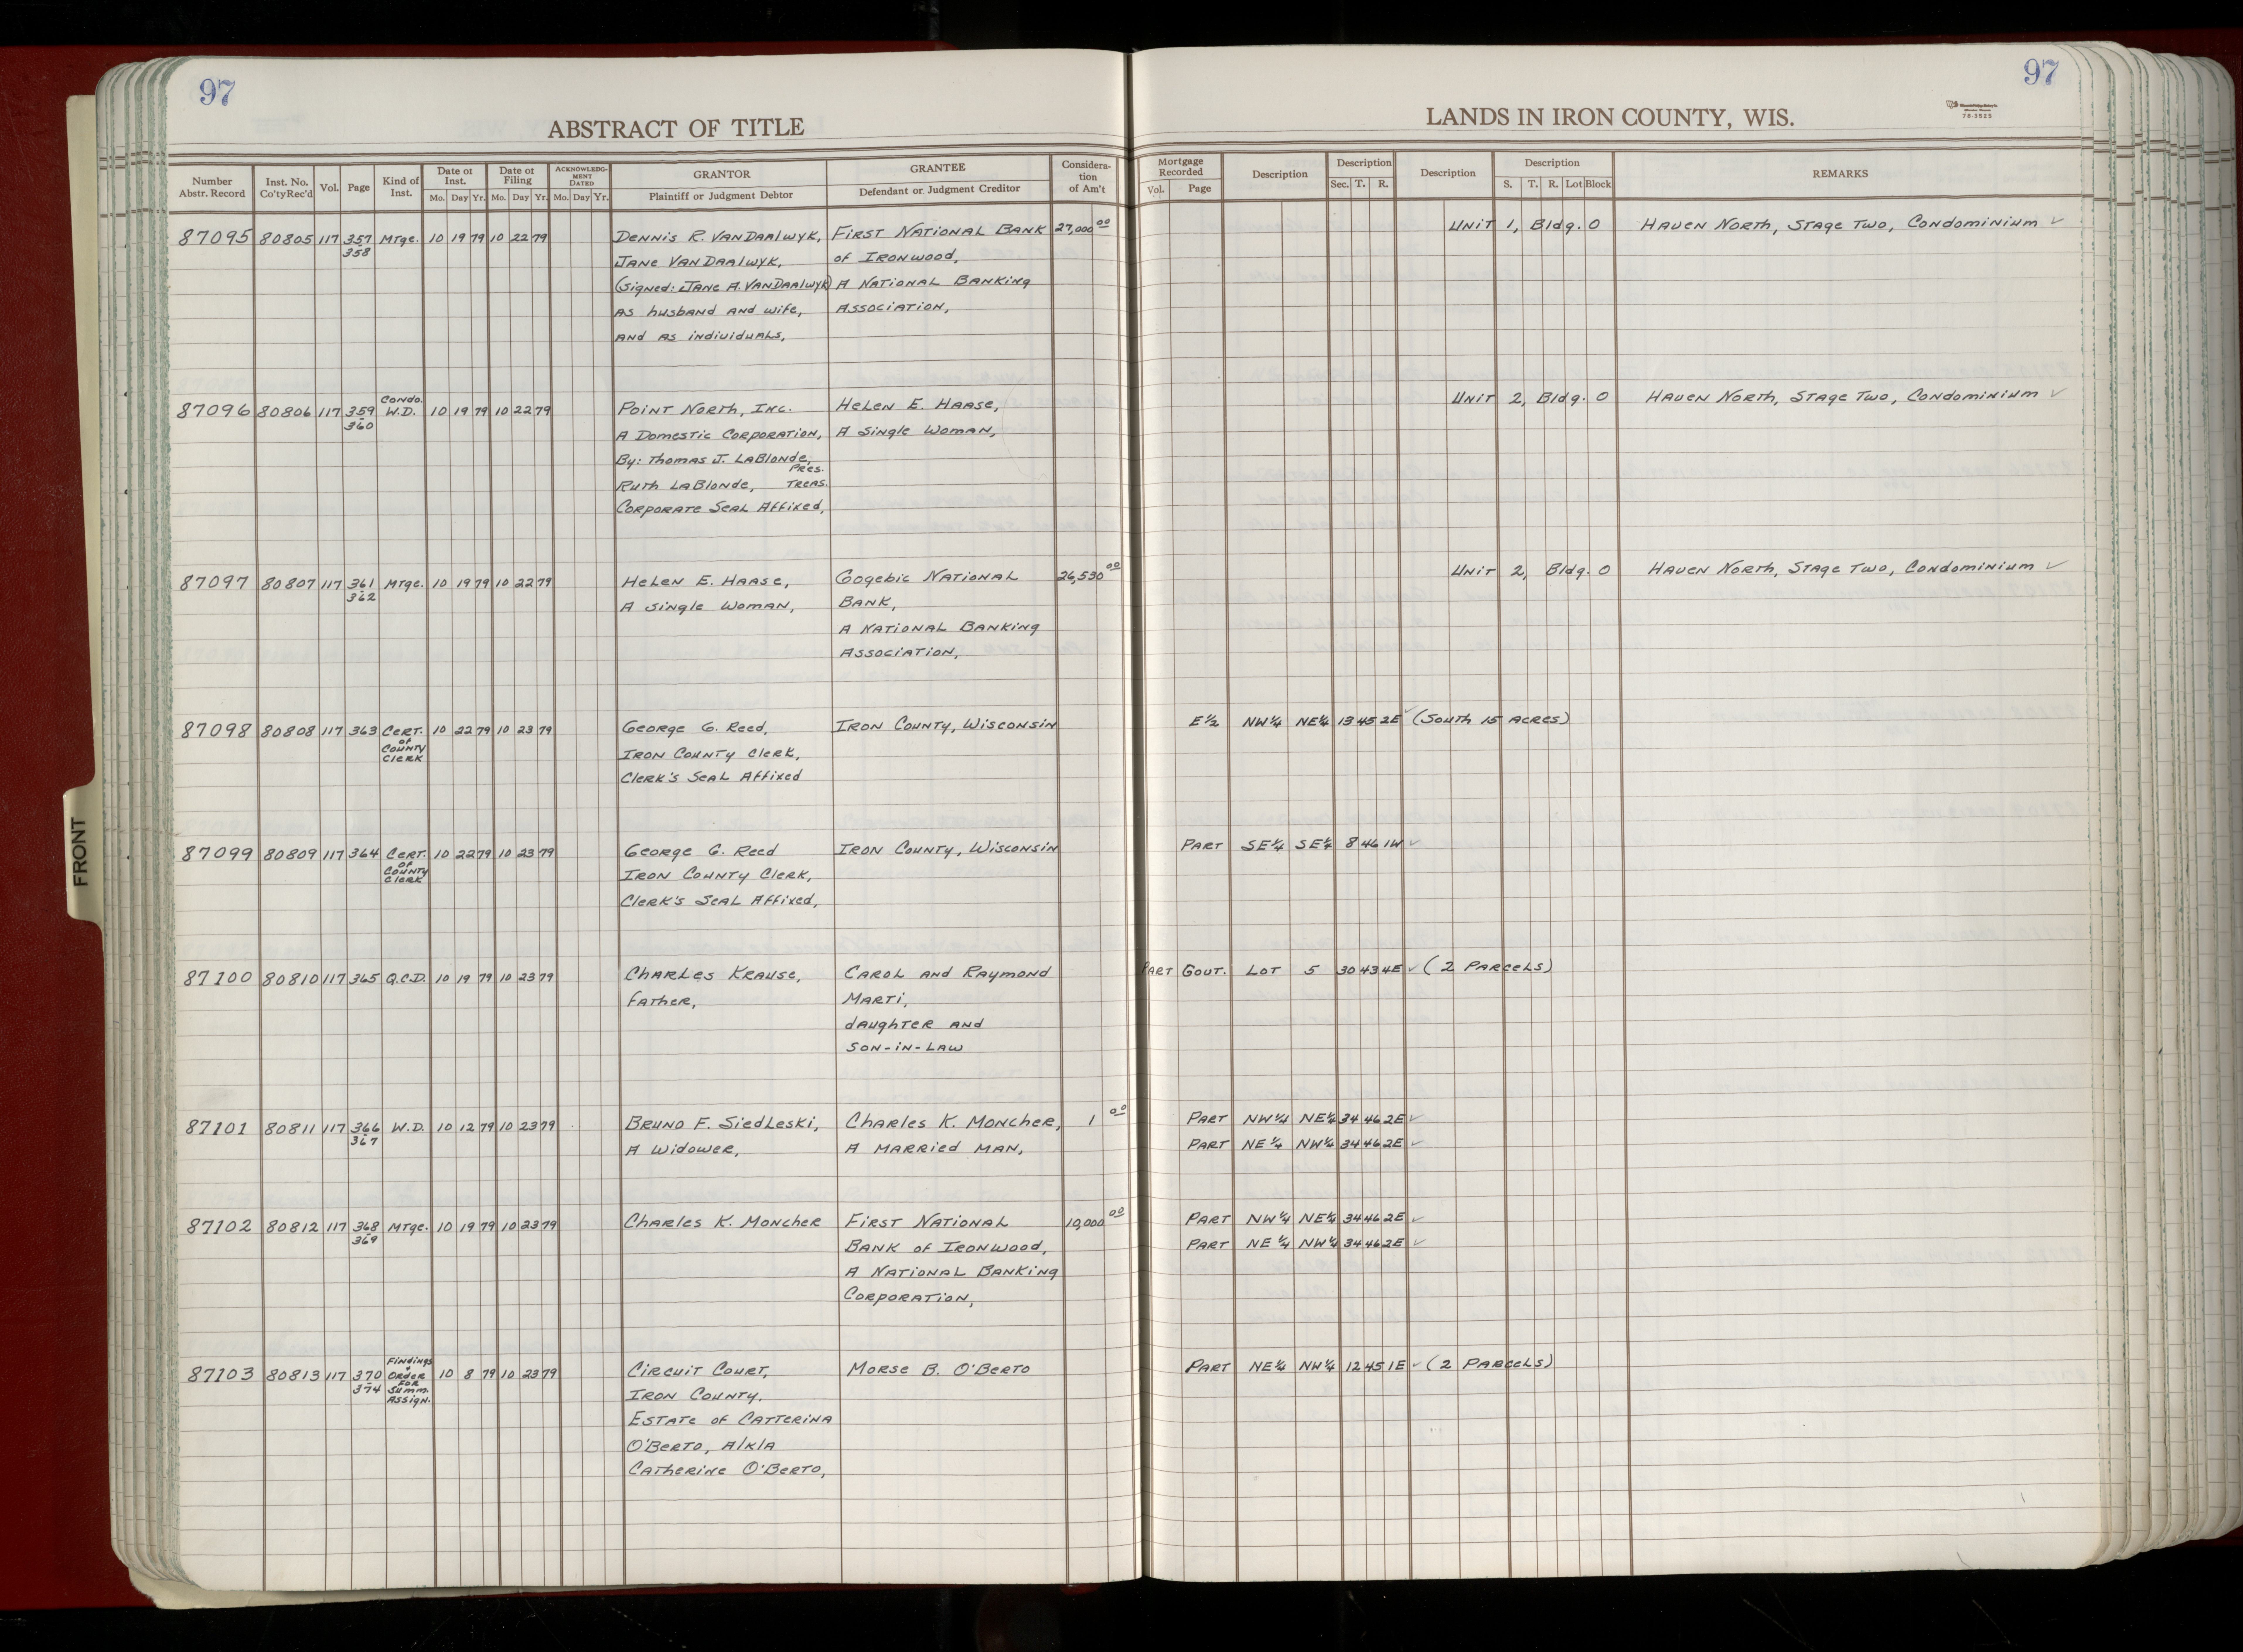 97
ABSTRACT OF TITLE
Number Abstr. Record Inst. No. Co'ty Rec'd Vol. Page Kind of Inst. Date of Inst. Mo. Day Yr. Date of Filing Mo. Day Yr. ACKNOWLEDG-MENT DATED Mo. Day Yr. GRANTOR Plaintiff or Judgment Debtor GRANTEE Defendant or Judgment Creditor Considera-tion of Am't
87095 80805 117 357 358 Mtge. 10 19 79 10 22 79 Dennis R. VanDaalwyk, First National Bank 27,000 00
Jane VanDaalwyk, of Ironwood,
(Signed: Jane A. VanDaalwyk) A National Banking
as husband and wife, Association,
and as individuals,
87096 80806 117 359 360 Condo. W.D. 10 19 79 10 22 79 Point North, Inc. Helen E. Haase,
A Domestic Corporation, A Single Woman,
By: Thomas J. LaBlonde, Pres.
Ruth LaBlonde, Treas.
Corporate Seal Affixed,
87097 80807 117 361 362 Mtge. 10 19 79 10 22 79 Helen E. Haase, Gogebic National 26,530 00
A Single Woman, Bank,
A National Banking
Association,
87098 80808 117 363 Cert. of County Clerk 10 22 79 10 23 79 George G. Reed, Iron County, Wisconsin
Iron County Clerk,
Clerk's Seal Affixed
87099 80809 117 364 Cert. of County Clerk 10 22 79 10 23 79 George G. Reed Iron County, Wisconsin
Iron County Clerk,
Clerk's Seal Affixed,
87100 80810 117 365 Q.C.D. 10 19 79 10 23 79 Charles Krause, Carol and Raymond
father, Marti,
daughter and
son-in-law
87101 80811 117 366 367 W.D. 10 12 79 10 23 79 Bruno F. Siedleski, Charles K. Moncher, 1 00
A Widower, A Married Man,
87102 80812 117 368 369 Mtge. 10 19 79 10 23 79 Charles K. Moncher First National 10,000 00
Bank of Ironwood,
A National Banking
Corporation,
87103 80813 117 370 374 Findings + Order for Summ. Assign. 10 8 79 10 23 79 Circuit Court, Morse B. O'Berto
Iron County.
Estate of Catterina
O'Berto, A/K/A
Catherine O'Berto,
97
LANDS IN IRON COUNTY, WIS.
78-3525
Mortgage Recorded Vol. Page Description Description Sec. T. R. Description Description S. T. R. Lot Block REMARKS
Unit 1, Bldg. O Haven North, Stage Two, Condominium ✓
Unit 2, Bldg. O Haven North, Stage Two, Condominium ✓
Unit 2, Bldg. O Haven North, Stage Two, Condominium ✓
E½ NW¼ NE¼ 13 45 2E ✓ (South 15 acres)
Part SE¼ SE¼ 8 46 1W ✓
Part Gout. Lot 5 30 43 4E ✓ (2 Parcels)
Part NW¼ NE¼ 34 46 2E ✓
Part NE¼ NW¼ 34 46 2E ✓
Part NW¼ NE¼ 34 46 2E ✓
Part NE¼ NW¼ 34 46 2E ✓
Part NE¼ NW¼ 12 45 1E ✓ (2 Parcels)
FRONT